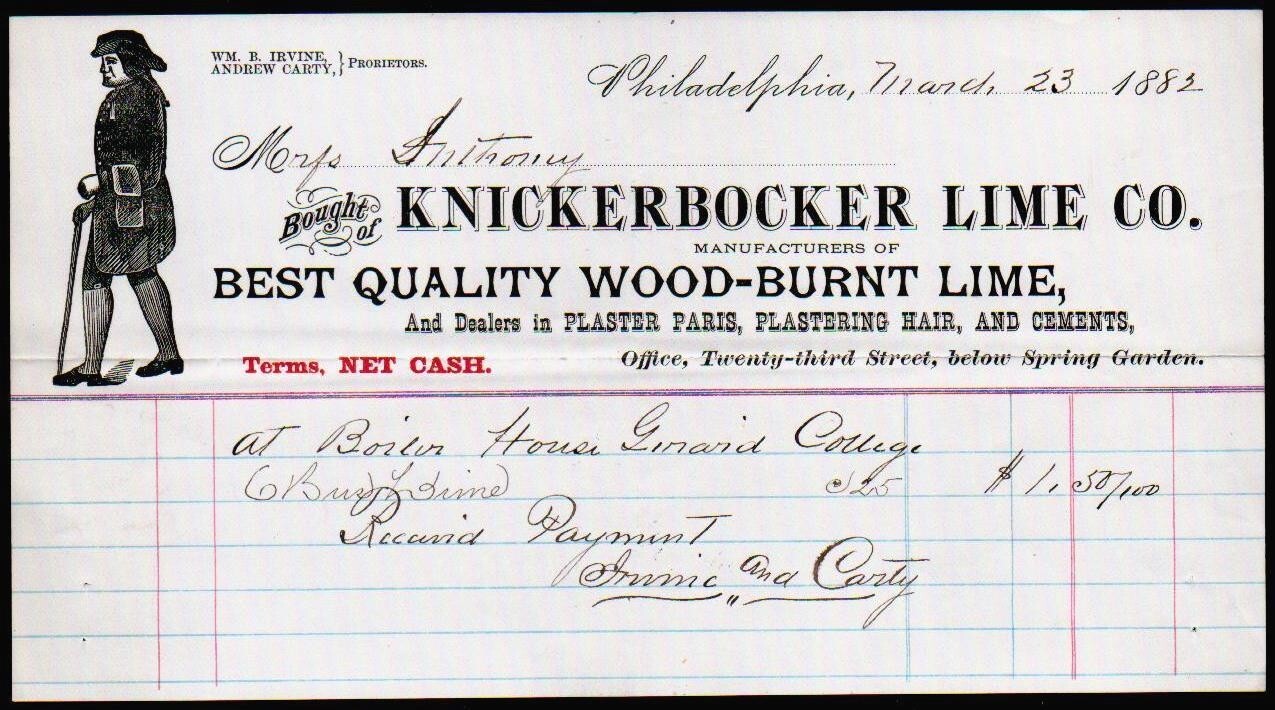 WM. B. IRVINE,
ANDREW CARTY, } PRORIETORS.
Philadelphia, March 23 1882
Mrss Anthony
Bought of KNICKERBOCKER LIME CO.
MANUFACTURERS OF
BEST QUALITY WOOD-BURNT LIME,
And Dealers in PLASTER PARIS, PLASTERING HAIR, AND CEMENTS,
Terms, NET CASH. Office, Twenty-third Street, below Spring Garden.
At Boiler House Girard College
(6 Bus Lime) 25 $ 1, 50/100
Received Payment
Irvine and Carty